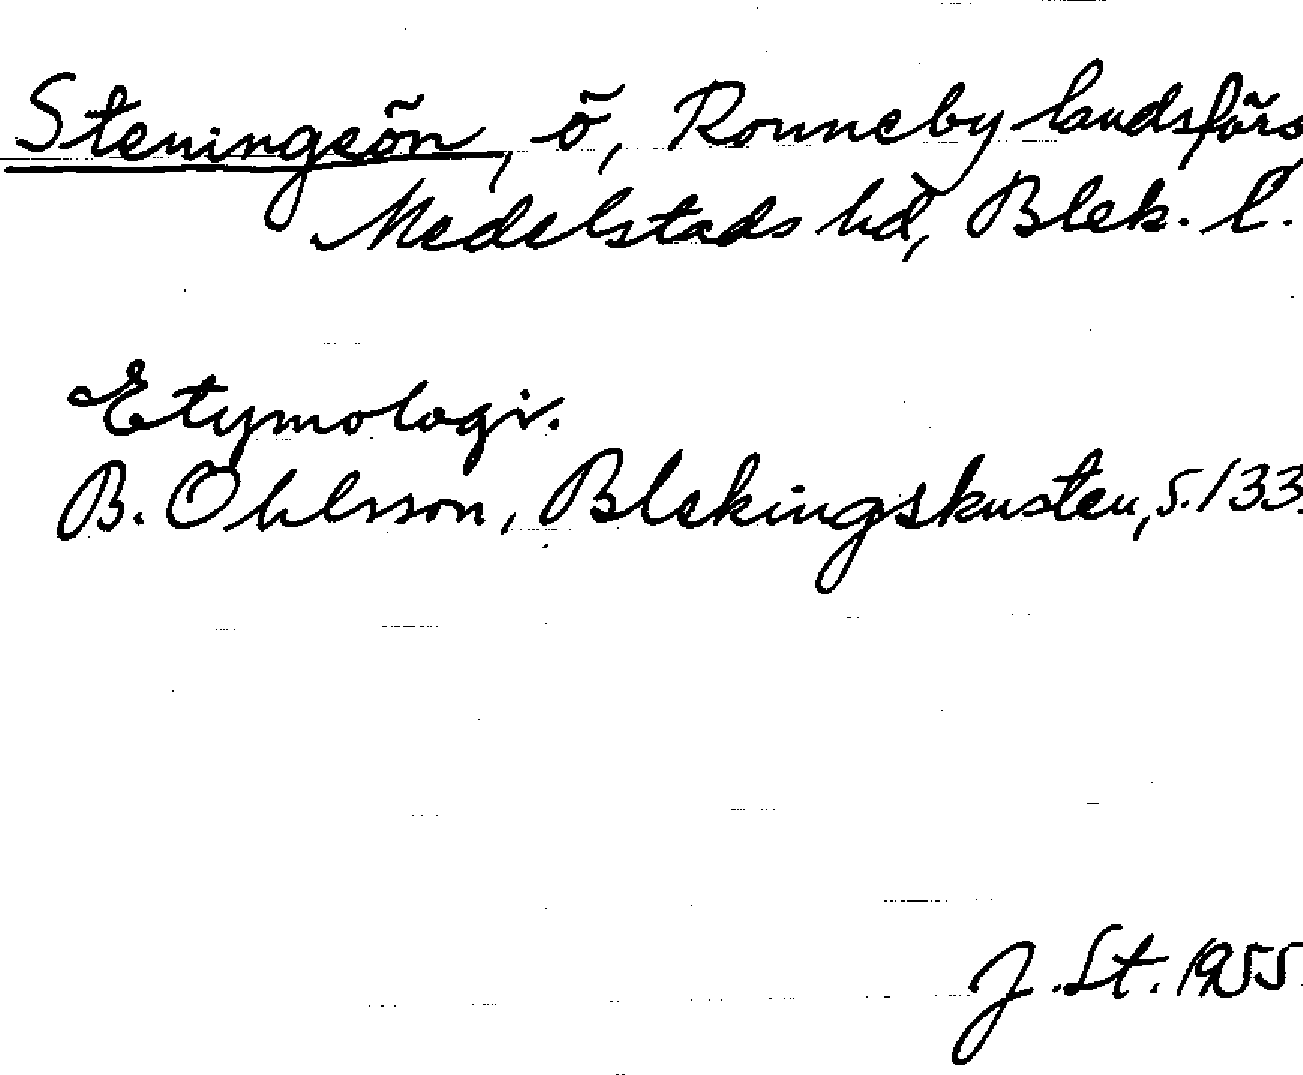 Steningeön, ö, Ronneby landsförs
Medelstads hd, Blek. l.
Etymologi.
B. Ohlsson, Blekingskusten, s. 133.
J. St. 1955